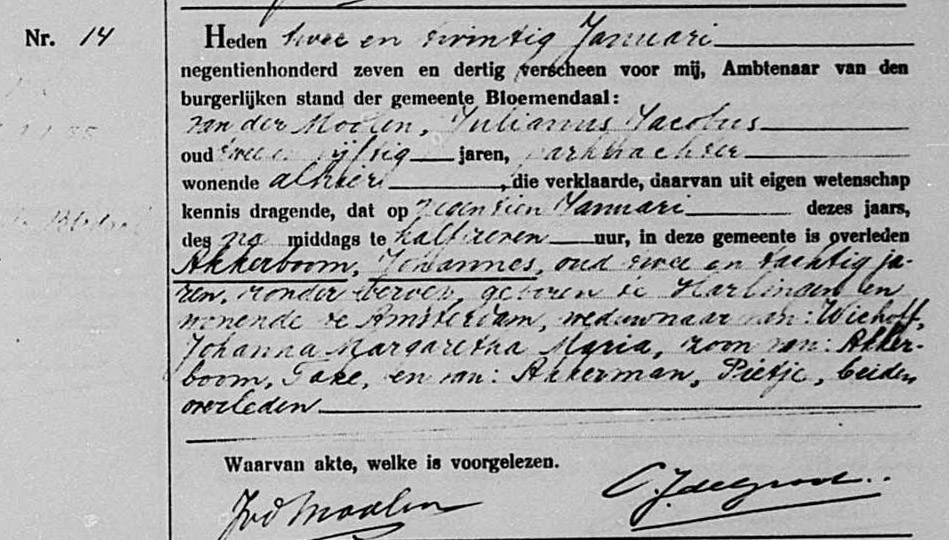 Nr. 14
Heden twee en twintig Januari
negentienhonderd zeven en dertig verscheen voor mij, Ambtenaar van den
burgerlijken stand der gemeente Bloemendaal:
van der Moolen, Julianus Jacobus
oud twee en vijftig jaren, parkwachter
wonende alhier, die verklaarde, daarvan uit eigen wetenschap
kennis dragende, dat op negentien Januari dezes jaars,
des na middags te half zeven uur, in deze gemeente is overleden
Akkerboom, Johannes, oud twee en tachtig ja-
ren, zonder beroep, geboren te Harlingen en
wonende te Amsterdam, weduwnaar van: Wiehoff,
Johanna Margaretha Maria, zoon van: Akker-
boom, Take, en van: Akkerman, Pietje, beiden
overleden
Waarvan akte, welke is voorgelezen.
JvdMoolen
C.J. de Groot